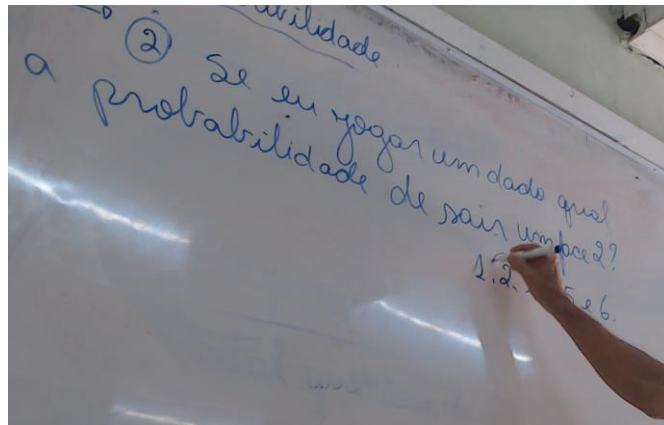 ② Se eu jogar um dado qual
a probabilidade de sair um face 2?
1, 2, 5 e 6.